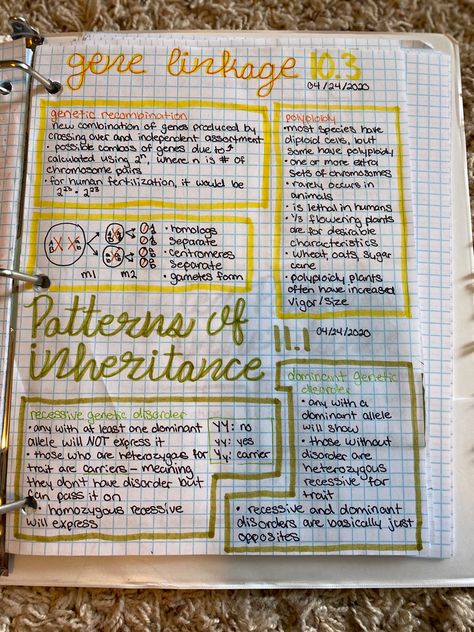 gene linkage 10.3
04/24/2020
genetic recombination
new combination of genes produced by
crossing over and independent assortment
• possible combos of genes due to ↑
calculated using 2ⁿ, where n is # of
chromosome pairs
• for human fertilization, it would be
2²³ · 2²³
• homologs
separate
• centromeres
separate
• gametes form
m1 m2
polyploidy
• most species have
diploid cells, but
some have polyploidy
• one or more extra
sets of chromosomes
• rarely occurs in
animals
• is lethal in humans
• 1/3 flowering plants
are for desirable
characteristics
• wheat, oats, sugar
cane
• polyploidy plants
often have increased
vigor/size
Patterns of
inheritance
11.1 04/24/2020
recessive genetic disorder
• any with at least one dominant
allele will NOT express it
• those who are heterozygous for
trait are carriers - meaning
they don't have disorder but
can pass it on
• homozygous recessive
will express
YY: no
yy: yes
Yy: carrier
dominant genetic
disorder
• any with a
dominant allele
will show
• those without
disorder are
heterozygous
recessive for
trait
• recessive and dominant
disorders are basically just
opposites